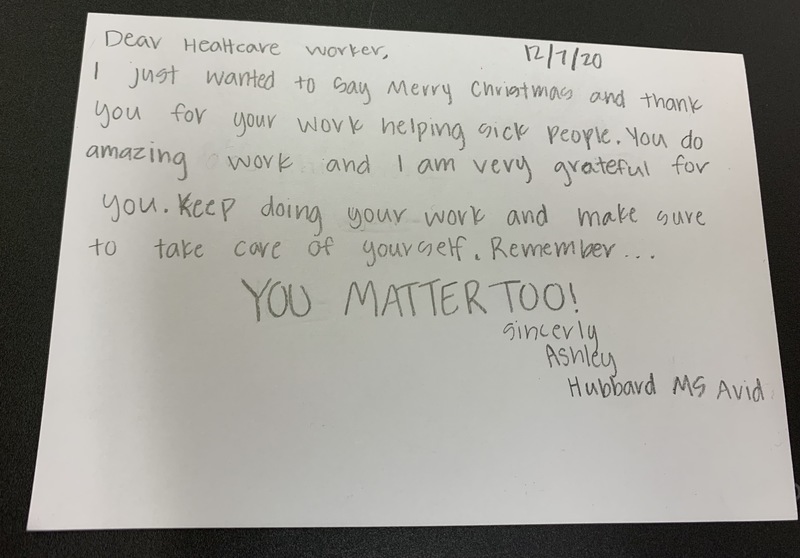 Dear Healtcare worker,
12/7/20
I just wanted to say Merry Christmas and thank
you for your work helping sick people. You do
amazing work and I am very grateful for
you. Keep doing your work and make sure
to take care of yourself. Remember...
YOU MATTER TOO!
sincerly
Ashley
Hubbard MS Avid